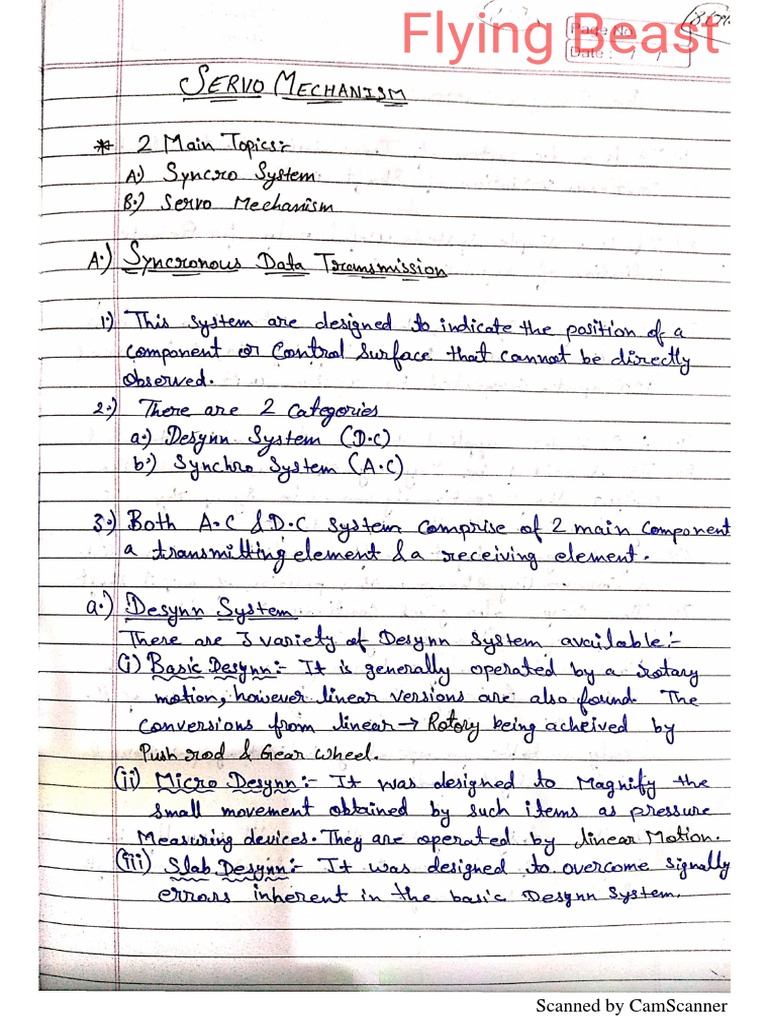 Flying Beast
Page No.
Date: / /
SERVO MECHANISM
* 2 Main Topics:-
A.) Syncro System
B.) Servo Mechanism
A.) Syncronous Data Transmission
1.) This system are designed to indicate the position of a
component or Control Surface that cannot be directly
observed.
2.) There are 2 categories
a.) Desynn System (D.C)
b.) Synchro System (A.C)
3.) Both A.C & D.C system comprise of 2 main component
a transmitting element & a receiving element.
a.) Desynn System
There are 3 variety of Desynn System available:-
(i) Basic Desynn:- It is generally operated by a rotary
motion, however linear versions are also found. The
conversions from linear → Rotory being acheived by
Push rod & Gear wheel.
(ii) Micro Desynn:- It was designed to Magnify the
small movement obtained by such items as pressure
Measuring devices. They are operated by linear Motion.
(iii) Slab Desynn:- It was designed to overcome signally
errors inherent in the basic Desynn System.
Scanned by CamScanner